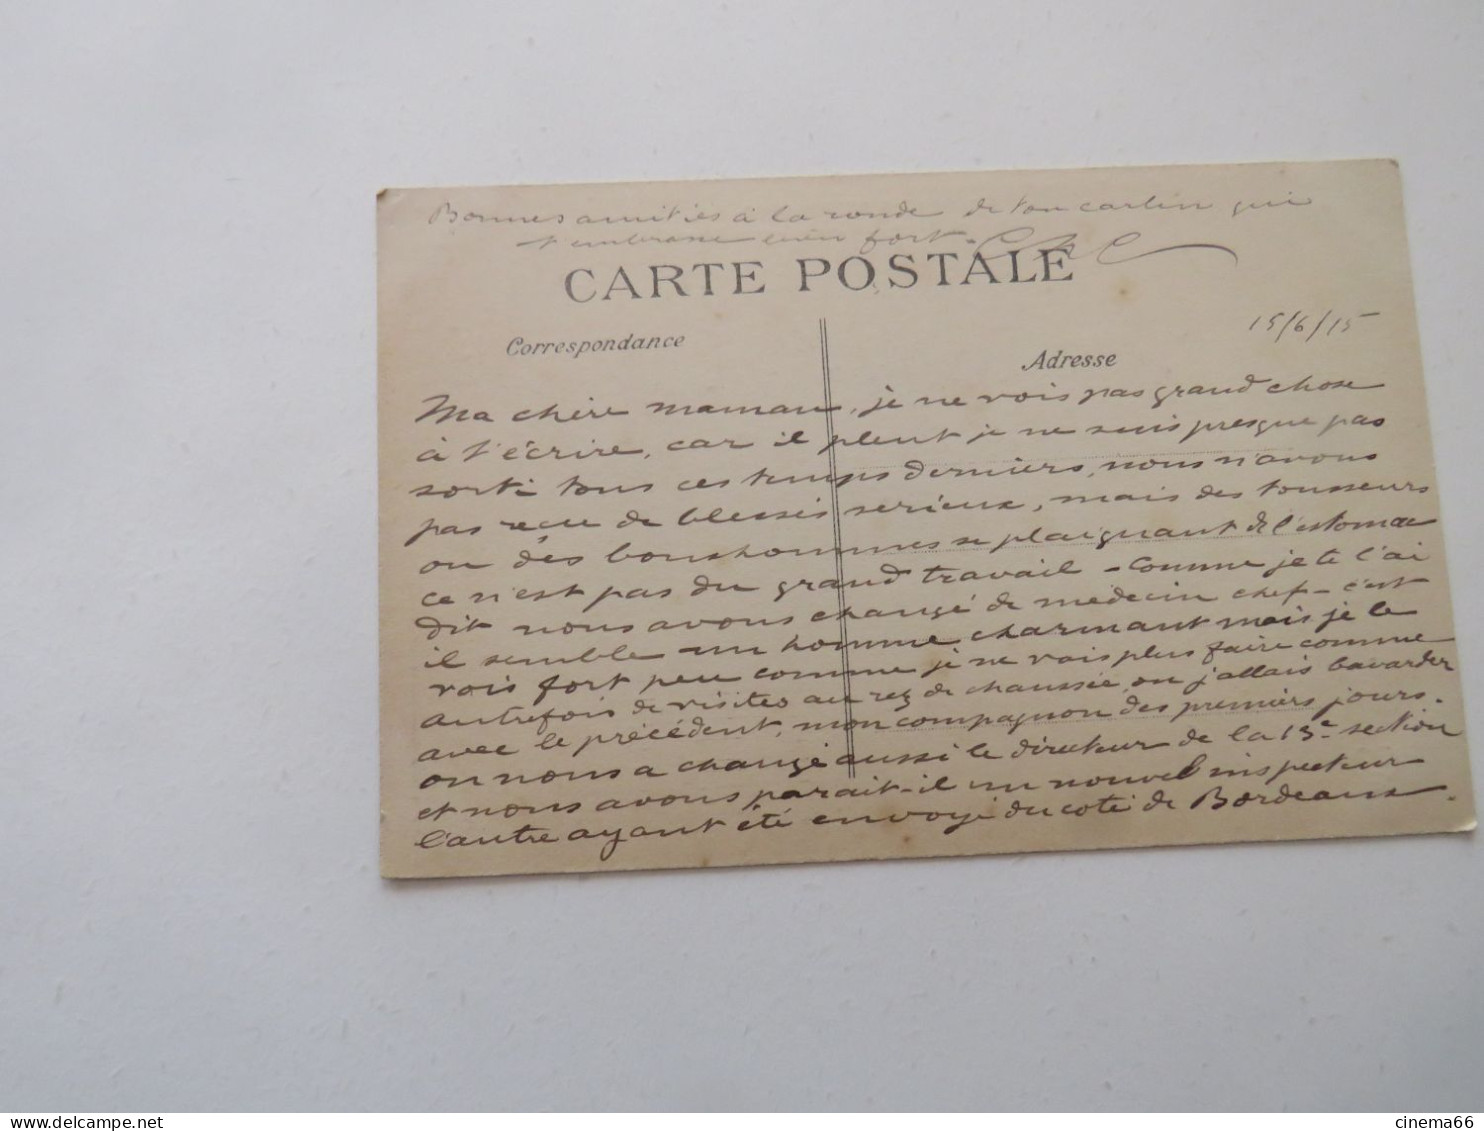 Bonnes amitiés à la ronde de ton carlin qui
t'embrasse bien fort.
CARTE POSTALE
Correspondance
Adresse
15/6/15
Ma chère maman, je ne vois pas grand chose
à t'écrire, car il pleut je ne suis presque pas
sorti tous ces temps derniers, nous n'avons
pas reçu de blessés serieux, mais des tousseurs
ou des bonshommes se plaignant de l'estomac
ce n'est pas du grand travail - Comme je te l'ai
dit nous avons changé de medecin chef - c'est
il semble un homme charmant mais je le
vois fort peu comme je ne vais plus faire comme
autrefois de visites au rez de chaussée, ou j'allais bavarder
avec le précédent, mon compagnon des premiers jours.
on nous a changé aussi le directeur de la 13e section
et nous avons parait-il un nouvel inspecteur
l'autre ayant été envoyé du coté de Bordeaux.
cinema66